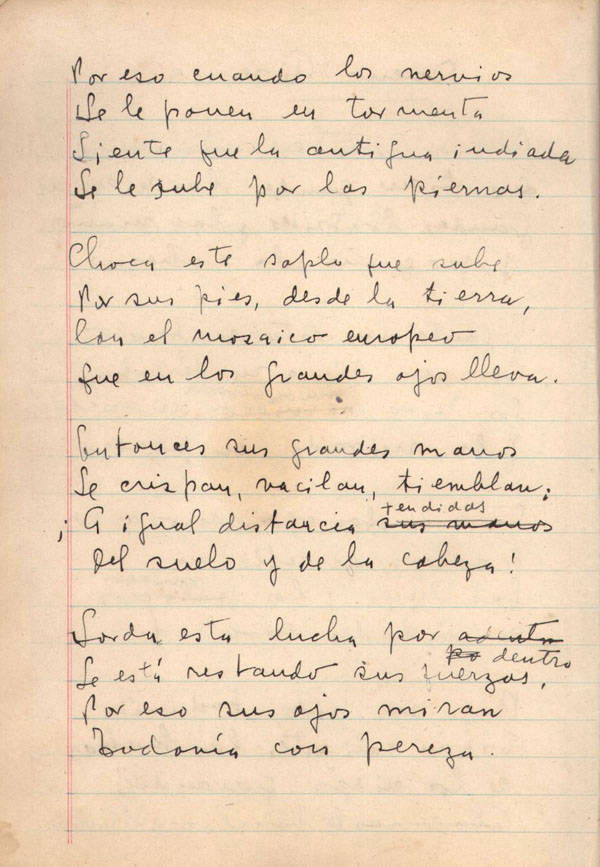 Por eso cuando los nervios
Se le ponen en tormenta
Siente que la antigua indiada
Se le sube por las piernas.
Choca este soplo que sube
Por sus pies, desde la tierra,
Con el mosaico europeo
Que en los grandes ojos lleva.
Entonces sus grandes manos
Se crispan, vacilan, tiemblan;
¡A igual distancia sus manos tendidas
Del suelo y de la cabeza!
Sorda esta lucha por adentro
po dentro
Se está restando sus fuerzas,
Por eso sus ojos miran
Todavía con pereza.